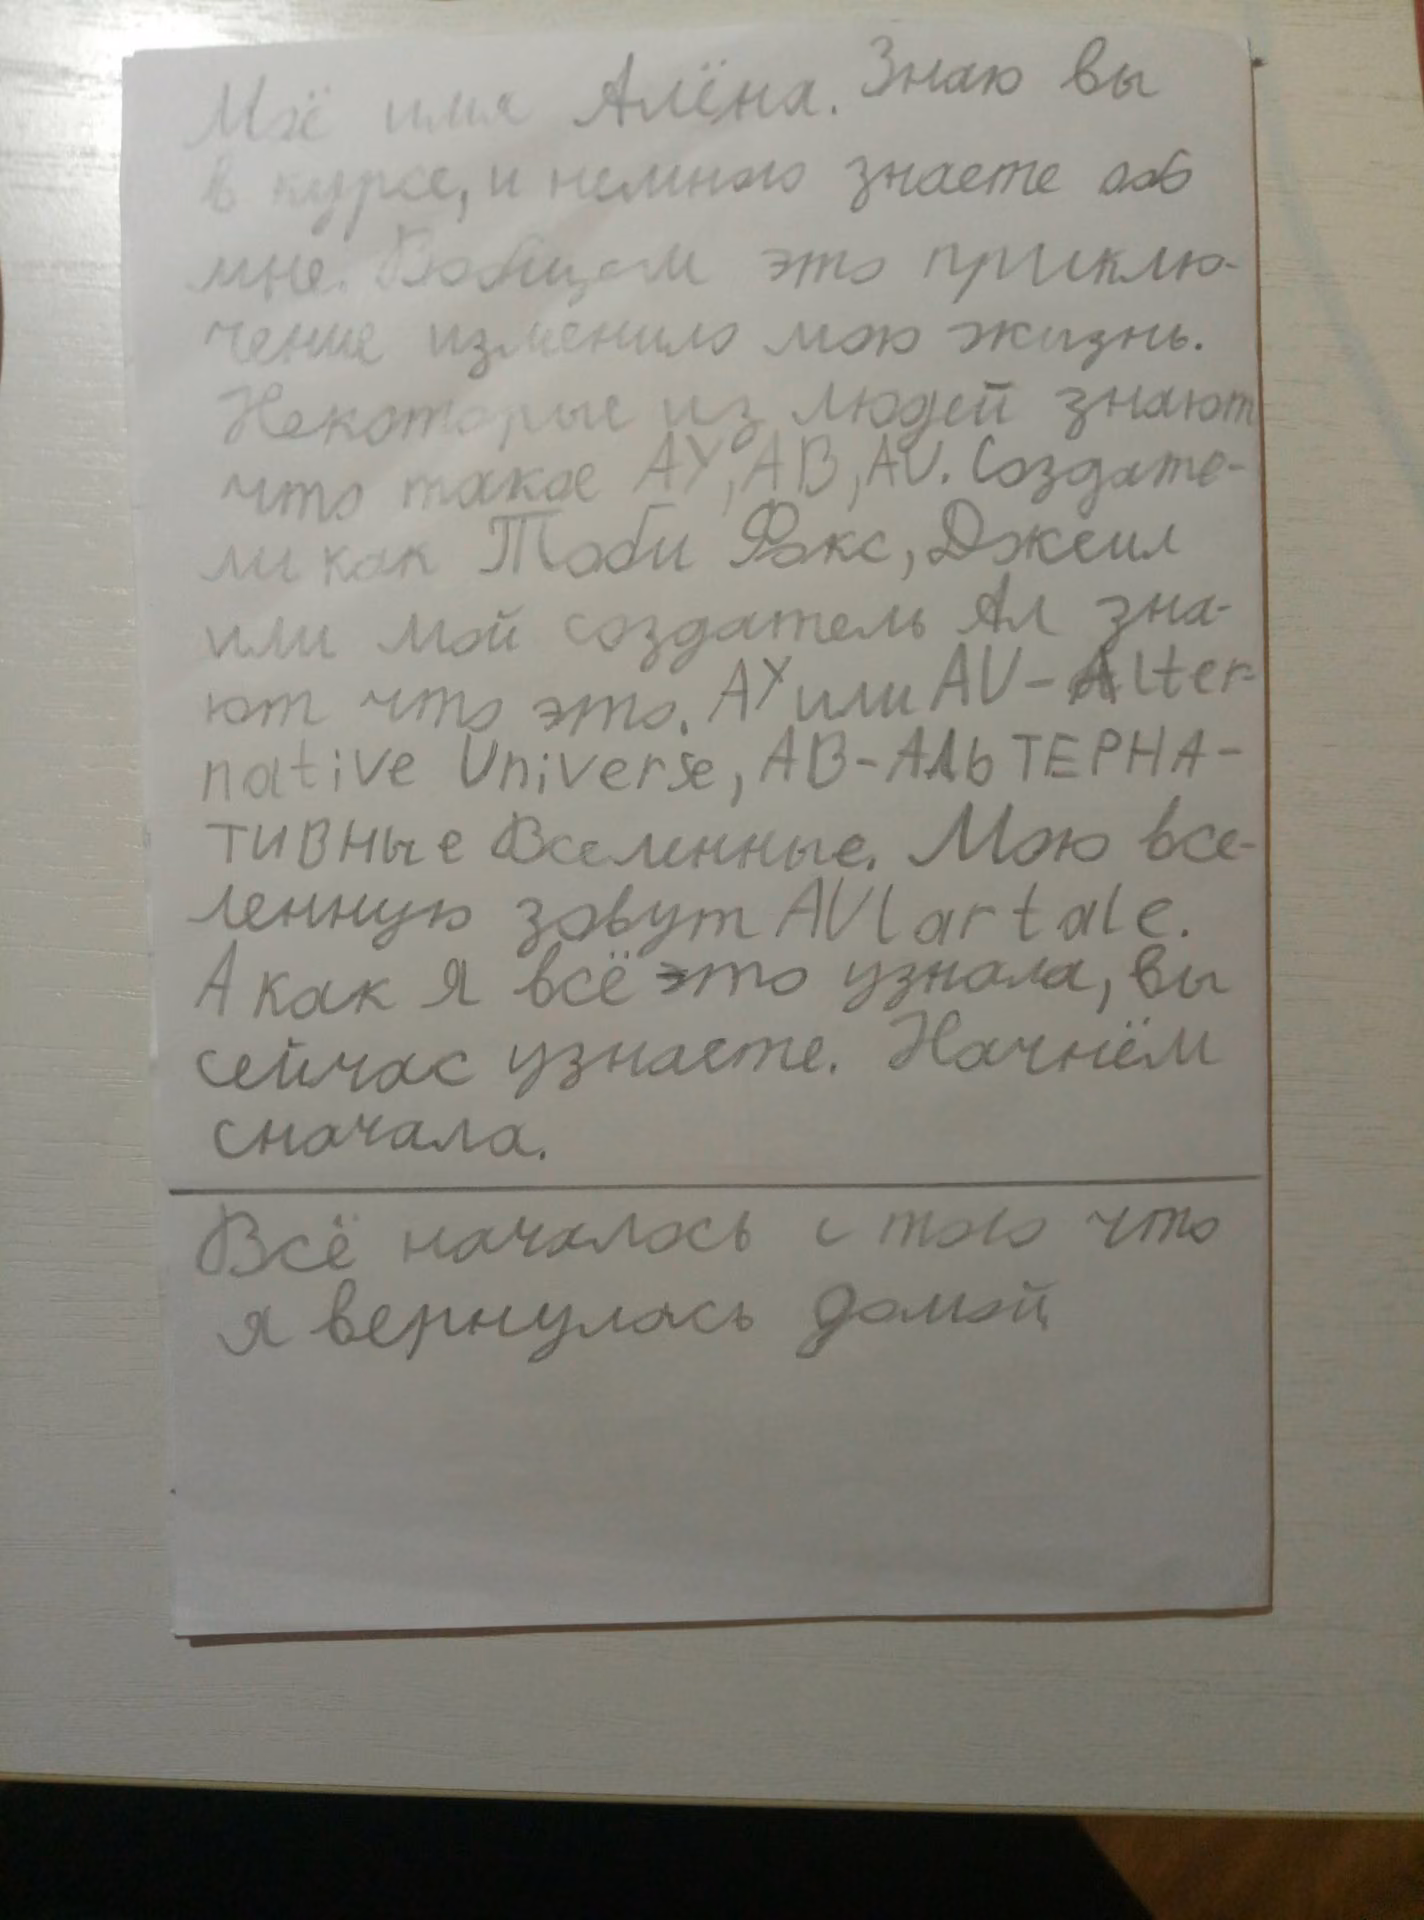 Моё имя Алёна. Знаю вы
в курсе, и немного знаете обо
мне. Вобщем это приклю-
чение изменило мою жизнь.
Некоторые из людей знают
что такое АУ, АВ, AU. Создате-
ли как Тоби Фокс, Джеил
или мой создатель Ал зна-
ют что это. АУ или AU - Alter-
native Universe, АВ - АЛЬТЕРНА-
ТИВНЫе Вселенные. Мою все-
ленную зовут AUlartale.
А как Я всё это узнала, вы
сейчас узнаете. Начнём
сначала.
Всё началось с того что
я вернулась домой